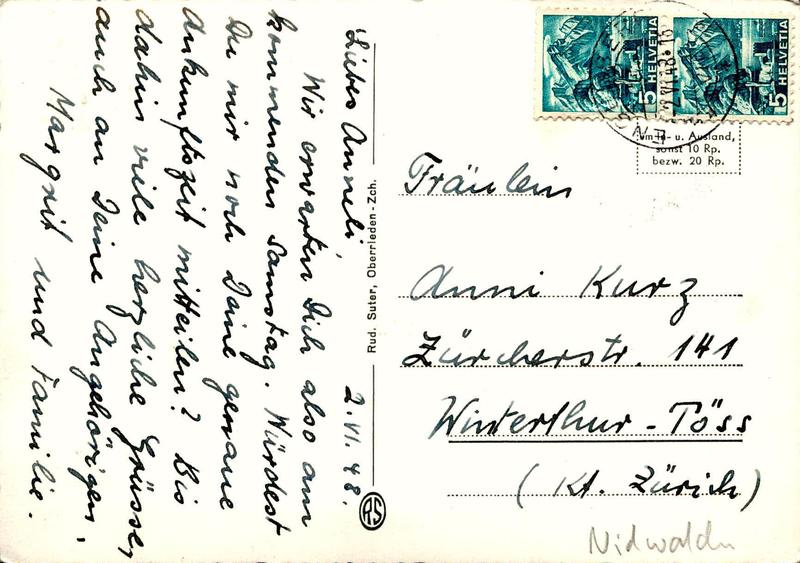 Liebes Anneli,
2. VI. 48.
Wir erwarten Dich also am
kommenden Samstag. Würdest
Du mir noch Deine genaue
Ankunftszeit mitteilen? Bis
dahin viele herzliche Grüsse,
auch an Deine Angehörigen,
Margrit und Familie.
Rud. Suter, Oberrieden-Zch.
RS
HELVETIA 5
HELVETIA 5
2.VI.48.-18
u. Ausland,
sonst 10 Rp.
bezw. 20 Rp.
Fräulein
Anni Kurz
Zürcherstr. 141
Winterthur-Töss
(Kt. Zürich)
Nidwalden